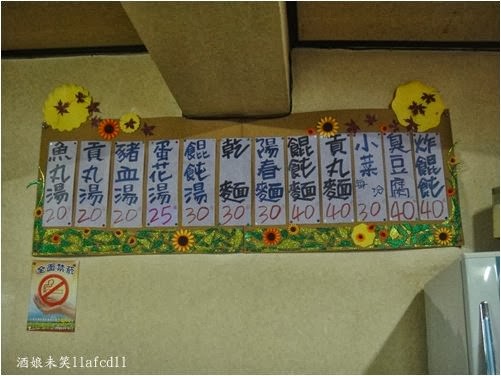 炸餛飩 40
臭豆腐 40
小菜 每份 30
貢丸麵 40
餛飩麵 40
陽春麵 30
乾麵 30
餛飩湯 30
蛋花湯 25
豬血湯 20
貢丸湯 20
魚丸湯 20
全面禁菸
酒娘未笑llafcdll